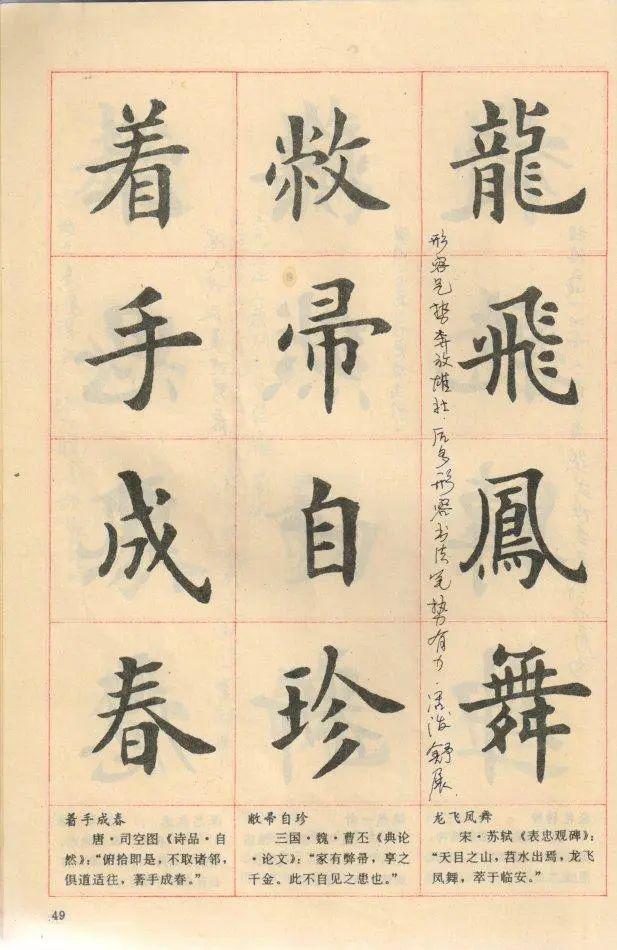 龍飛鳳舞
形容气势奔放雄壮.后多形容书法笔势有力.活泼舒展.
敝帚自珍
着手成春
龙飞凤舞
宋·苏轼《表忠观碑》：
“天目之山，苕水出焉，龙飞
凤舞，萃于临安。”
敝帚自珍
三国·魏·曹丕《典论
·论文》：“家有弊帚，享之
千金。此不自见之患也。”
着手成春
唐·司空图《诗品·自
然》：“俯恰即是，不取诸邻，
俱道适往，著手成春。”
49